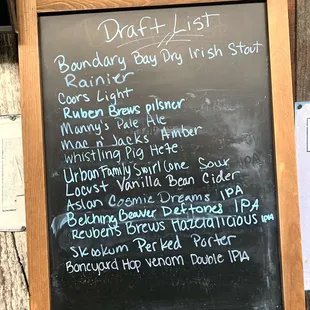 Draft List
Boundary Bay Dry Irish Stout
Rainier
Coors Light
Ruben Brews pilsner
Manny's Pale Ale
Mac n' Jack's Amber
Whistling Pig Hefe
Urban Family Swirl Cone Sour
Locust Vanilla Bean Cider
Aslan Cosmic Dreams IPA
Belching Beaver Deftones IPA
Reuben's Brews Hazealicious IPA
Skookum Perked Porter
Boneyard Hop Venom Double IPA